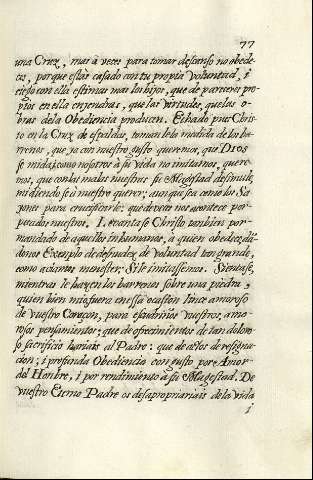 77
una Cruz, mas à veces para tomar descanso no obede-
ces, porque estàs casado con tu propia Voluntad, i
ciego con ella estimas mas los hijos, que de pareceres pro-
pios en ella enjendras, que las virtudes, que las o-
bras de la Obediencia producen. Echado pues Chris-
to en la Cruz de espaldas, toman le la medida de los ba-
rrenos, que ya con nuestro gusto queremos, que DIOS
se mida; como nosotros à su vida no imitamos, quere-
mos, que con las malas nuestras su Magestad disimule,
midiendo se à nuestro querer; aun que sea como los Sa-
yones para crucificarle: que de veces nos acontece por
pecados nuestros. Levantase Christo tanbien por
mandado de aquellos inhumanos, a quien obedece, dã-
donos Exemplo de desnudez de Voluntad tan grande,
como aciamos menester; Si le imitassemos. Sientase,
mientras le hazen los barrenos sobre una piedra,
quien bien mio fuera en essa ocasion lince amoroso
de vuestro Coraçon, para escudriñar vuestros, amo-
rosos pensamientos; que de ofrecimientos de tan doloro-
so sacrificio hariais al Padre: que de actos de resigna-
cion; i profunda Obediencia con gusto por Amor
del Honbre, i por rendimiento à su Magestad. De
vuestro Eterno Padre os desapropiariais de la vida
i